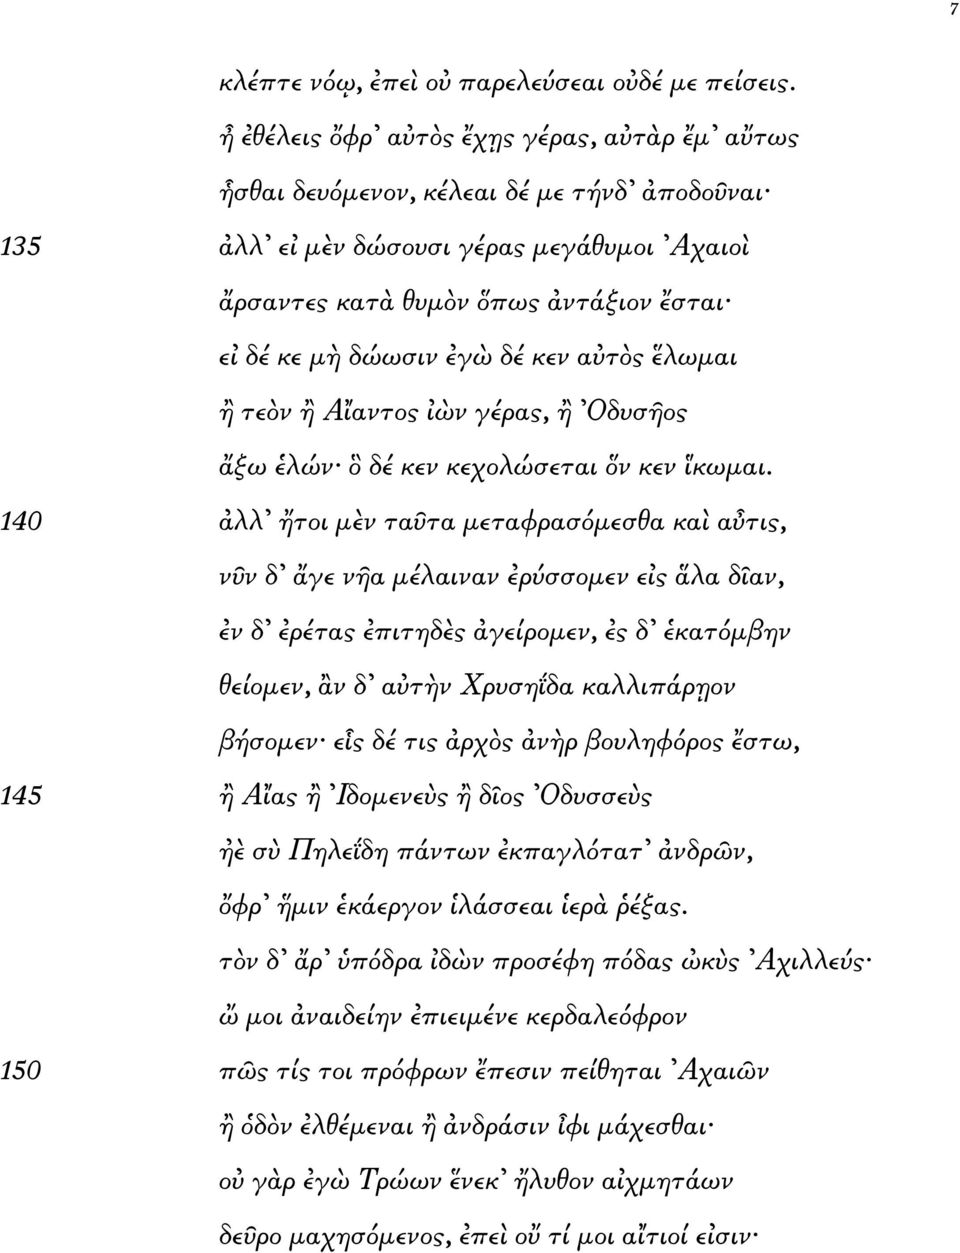 7
κλέπτε νόῳ, ἐπεὶ οὐ παρελεύσεαι οὐδέ με πείσεις.
ἦ ἐθέλεις ὄφρ’ αὐτὸς ἔχῃς γέρας, αὐτὰρ ἔμ’ αὔτως
ἧσθαι δευόμενον, κέλεαι δέ με τήνδ’ ἀποδοῦναι·
135 ἀλλ’ εἰ μὲν δώσουσι γέρας μεγάθυμοι Ἀχαιοὶ
ἄρσαντες κατὰ θυμὸν ὅπως ἀντάξιον ἔσται·
εἰ δέ κε μὴ δώωσιν ἐγὼ δέ κεν αὐτὸς ἕλωμαι
ἢ τεὸν ἢ Αἴαντος ἰὼν γέρας, ἢ Ὀδυσῆος
ἄξω ἑλών· ὃ δέ κεν κεχολώσεται ὅν κεν ἵκωμαι.
140 ἀλλ’ ἤτοι μὲν ταῦτα μεταφρασόμεσθα καὶ αὖτις,
νῦν δ’ ἄγε νῆα μέλαιναν ἐρύσσομεν εἰς ἅλα δῖαν,
ἐν δ’ ἐρέτας ἐπιτηδὲς ἀγείρομεν, ἐς δ’ ἑκατόμβην
θείομεν, ἂν δ’ αὐτὴν Χρυσηΐδα καλλιπάρῃον
βήσομεν· εἷς δέ τις ἀρχὸς ἀνὴρ βουληφόρος ἔστω,
145 ἢ Αἴας ἢ Ἰδομενεὺς ἢ δῖος Ὀδυσσεὺς
ἠὲ σὺ Πηλεΐδη πάντων ἐκπαγλότατ’ ἀνδρῶν,
ὄφρ’ ἥμιν ἑκάεργον ἱλάσσεαι ἱερὰ ῥέξας.
τὸν δ’ ἄρ’ ὑπόδρα ἰδὼν προσέφη πόδας ὠκὺς Ἀχιλλεύς·
ὤ μοι ἀναιδείην ἐπιειμένε κερδαλεόφρον
150 πῶς τίς τοι πρόφρων ἔπεσιν πείθηται Ἀχαιῶν
ἢ ὁδὸν ἐλθέμεναι ἢ ἀνδράσιν ἶφι μάχεσθαι·
οὐ γὰρ ἐγὼ Τρώων ἕνεκ’ ἤλυθον αἰχμητάων
δεῦρο μαχησόμενος, ἐπεὶ οὔ τί μοι αἴτιοί εἰσιν·